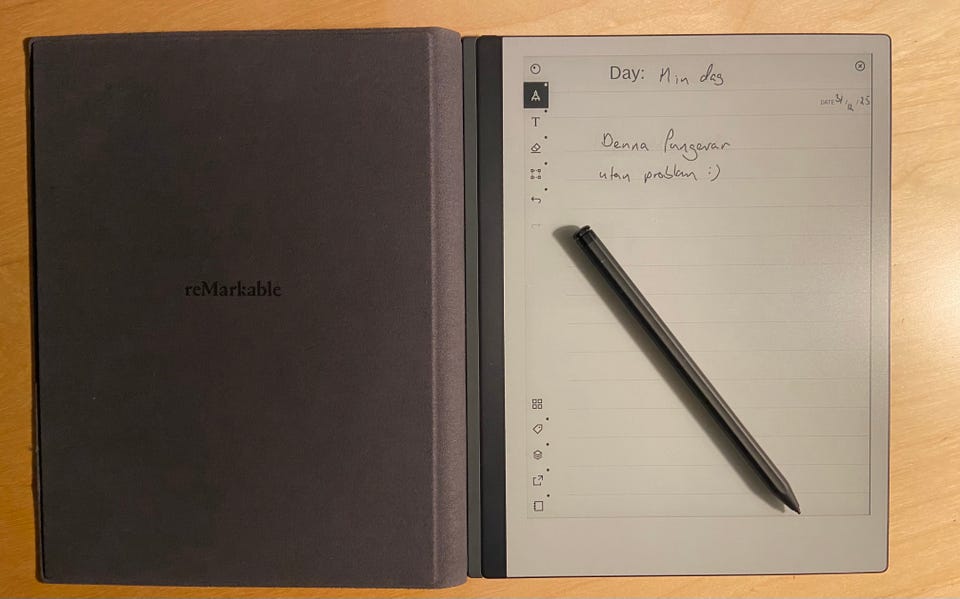 reMarkable
Day: Min dag
DATE 31/12/25
T
Denna Pungerar
utan problem :)